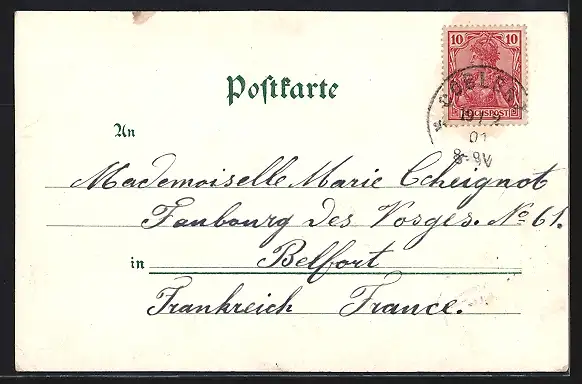 10 10
REICHSPOST
COBLENZ
19 1 2
01
8-9V
Postkarte
An
Mademoiselle Marie Cheignot
Faubourg des Vosges. No 61.
in Belfort
Frankreich France.